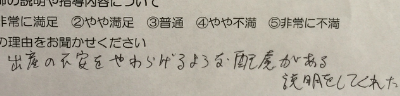 師の説明や指導内容について
非常に満足 ②やや満足 ③普通 ④やや不満 ⑤非常に不満
の理由をお聞かせください
出産の不安をやわらげるような配慮がある
説明をしてくれた